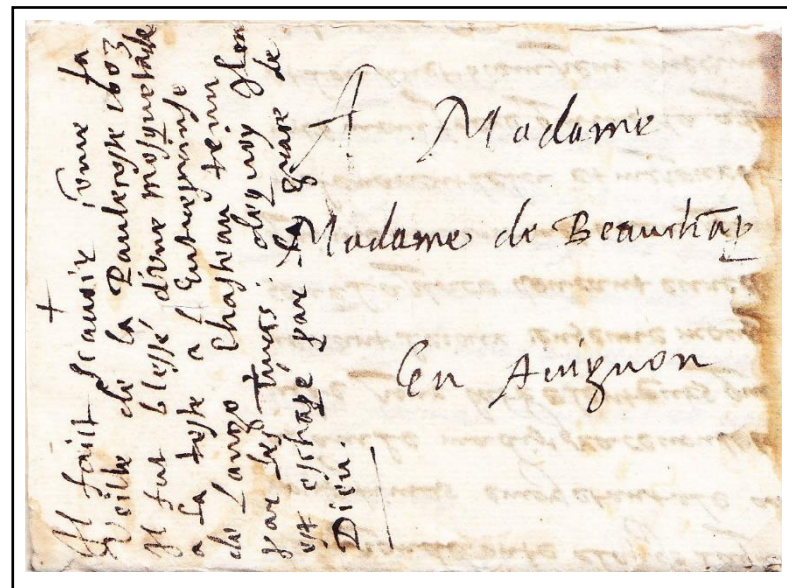 A Madame
Madame de Beauchāp
En Auignon
Il faict scauoir comme la
veilhe de la Pantecoste 1603
Il fut blessé d'une mosquetade
a la teste a l'entreprinse
de Lango Chasteau tenu
par les Turcs. dequoy
est eschapé par la grace de
Dieu.